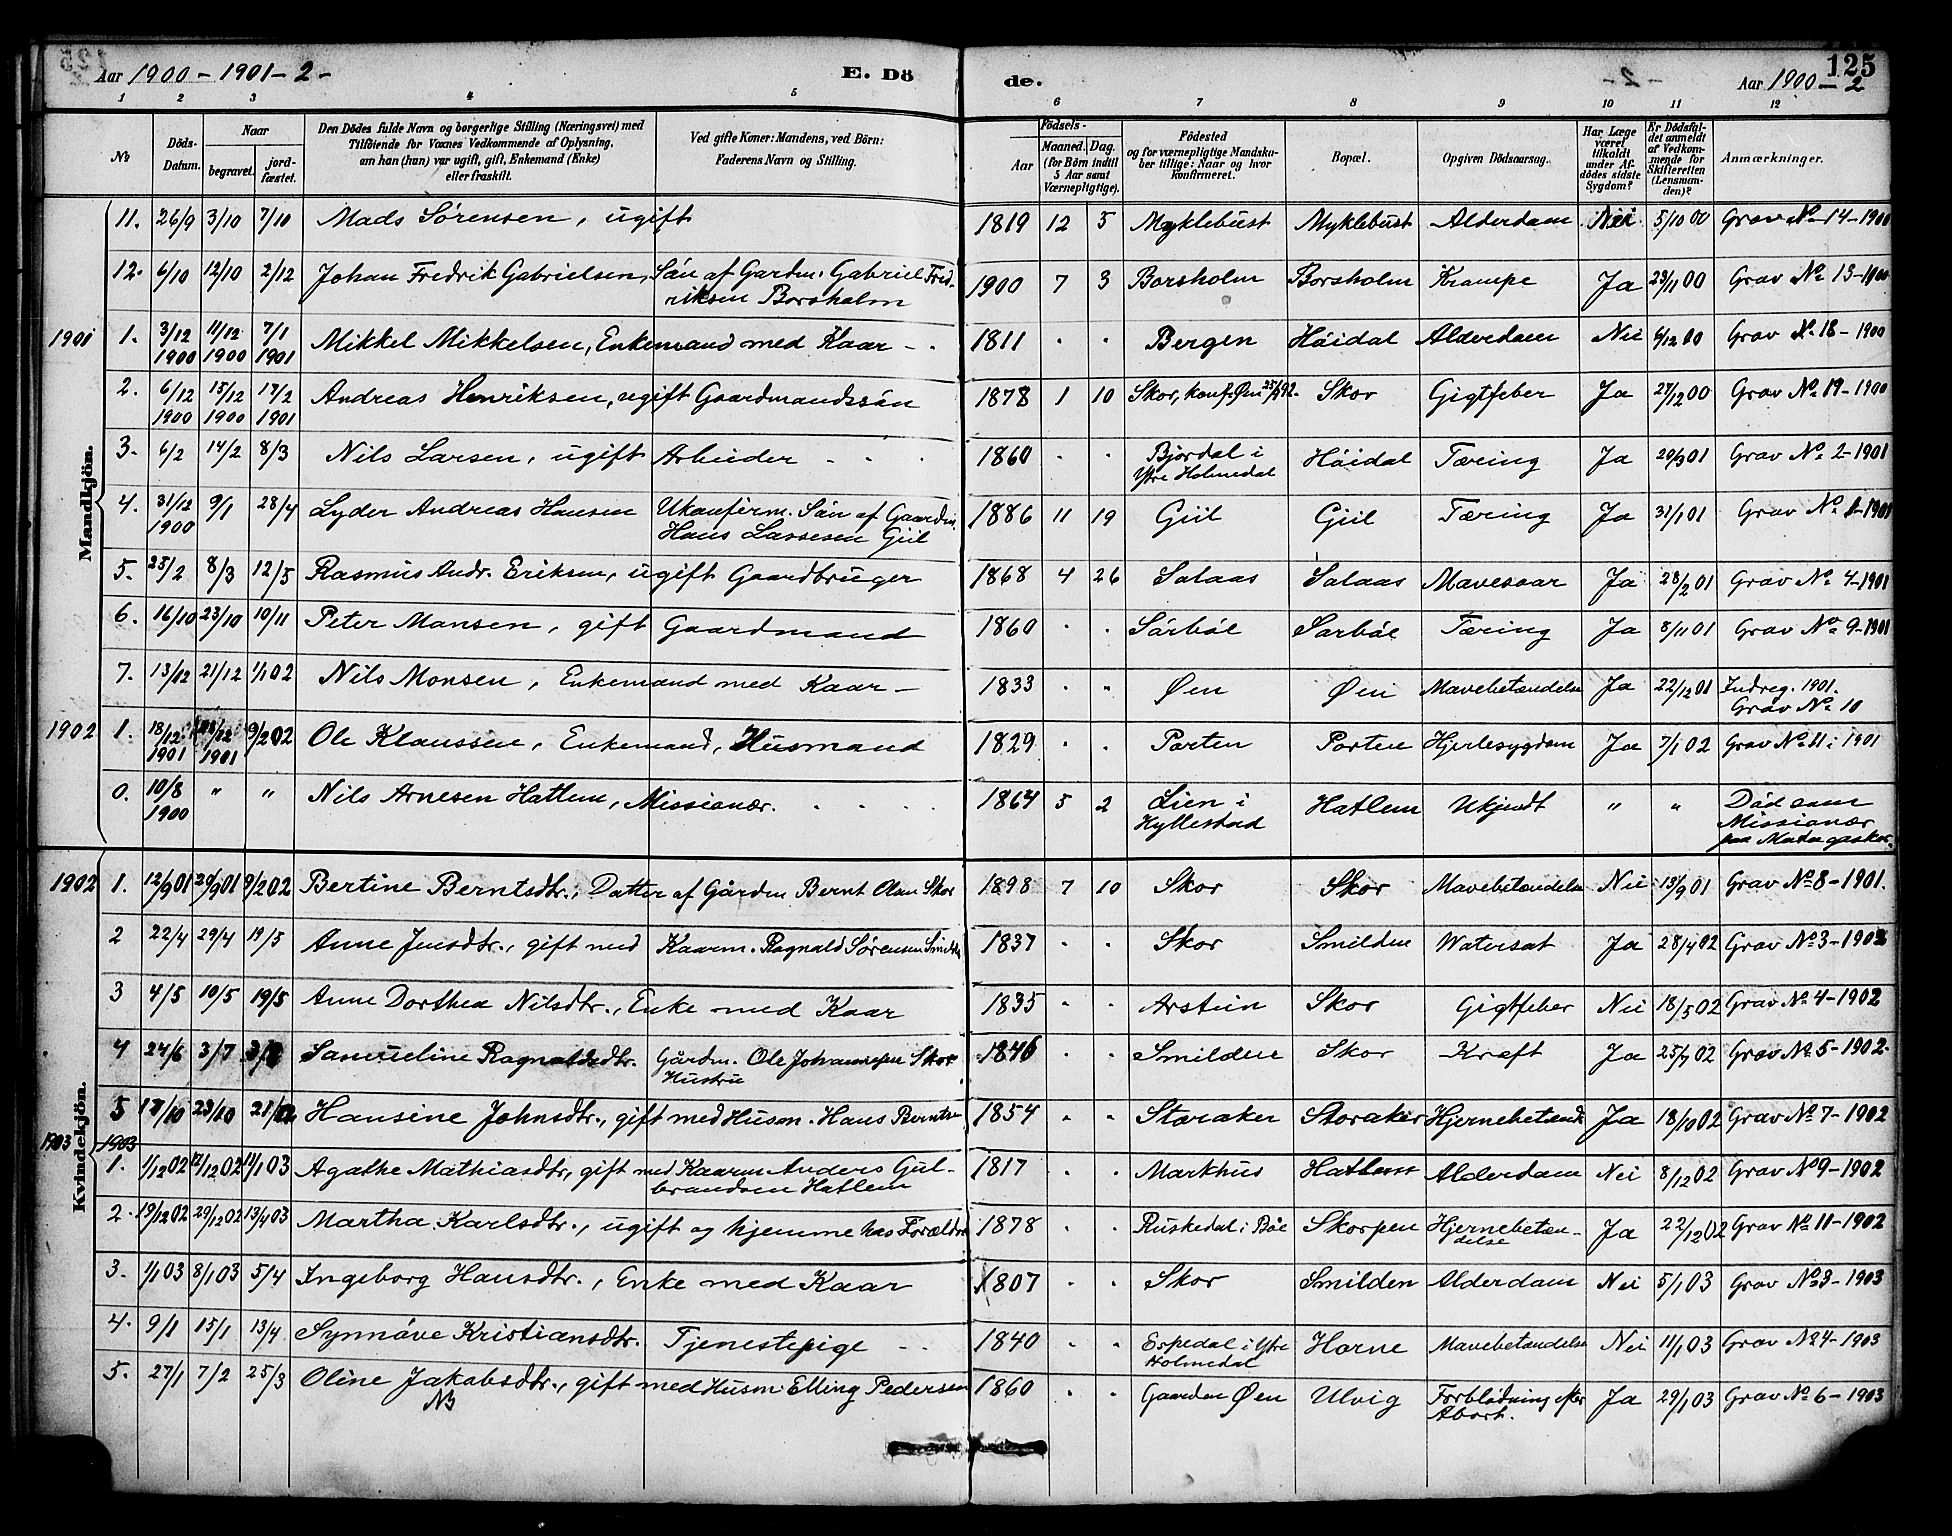 Aar 1900 - 1901 - 2 -
E. Dö
de.
Aar 1900 - 2
125
1 2 3 4 5 6 7 8 9 10 11 12
No
Döds-Datum.
Naar
begravet.
jordfæstet.
Den Dödes fulde Navn og borgerlige Stilling (Næringsvei) med
Tilföiende for Voxnes Vedkommende af Oplysning,
om han (hun) var ugift, gift, Enkemand (Enke)
eller fraskilt.
Ved gifte Koner: Mandens, ved Börn:
Faderens Navn og Stilling.
Födsels-
Aar
Maaned. Dag.
(for Börn indtil
5 Aar samt
Værnepligtige).
Födested
og for værnepligtige Mandsko-
ber tillige: Naar og hvor
konfirmeret.
Bopæl.
Opgiven Dödsaarsag.
Har Læge
været
tilkaldt
under Af-
dödes sidste
Sygdom?
Er Dödsfal-
det anmeldt
af Vedkom-
mende for
Skifteretten
(Lensman-
den)?
Anmærkninger.
Mandkjön.
11. 26/9 3/10 7/10 Mads Sørensen, ugift 1819 12 5 Myklebust Myklebust Alderdom Nei 5/10 00 Grav No 14-1900
12. 6/10 12/10 2/12 Johan Fredrik Gabrielsen, Sön af Gardm. Gabriel Fred-
riksen Borsholm 1900 7 3 Borsholm Borsholm Krampe Ja 23/11 00 Grav No 13-1900
1901 1. 3/12 1900 11/12 1900 7/1 1901 Mikkel Mikkelsen, Enkemand med Kaar - . 1811 . . Bergen Höidal Alderdom Nei 6/12 00 Grav No 18-1900
2. 6/12 1900 15/12 1900 17/2 1901 Andreas Henriksen, ugift Gaardmandssön 1878 1 10 Skor, konf. Øen 92. Skor Gigtfeber Ja 27/12 00 Grav No 19-1900
3. 6/2 14/2 8/3 Nils Larsen, ugift Arbeider - . . 1860 . . Bjordal i
Ytre Holmedal Höidal Tæring Ja 20/3 01 Grav No 2-1901
4. 31/12 1900 9/1 28/4 Lyder Andreas Hansen Ukonfirm. Sön af Gaardm.
Hans Lassesen Giil 1886 11 19 Giil Giil Tæring Ja 31/1 01 Grav No 1-1901
5. 25/2 8/3 12/5 Rasmus Andr. Eriksen, ugift Gaardbruger 1868 4 26 Salaas Salaas Mavesaar Ja 28/2 01 Grav No 4-1901
6. 16/10 23/10 10/11 Peter Monsen, gift Gaardmand 1860 . . Sörböe Sörböe Tæring Ja 8/11 01 Grav No 9-1901
7. 13/12 21/12 1/1 02 Nils Monsen, Enkemand med Kaar - 1833 . " Øen Øen Mavebetændelse Ja 22/12 01 Indreg. 1901.
Grav No 10
1902 1. 18/12 1901 /12 1901 9/2 02 Ole Klaussen, Enkemand, Husmand 1829 . . Porten Porten Hjertesygdom Ja 7/1 02 Grav No 11 i 1901
0. 10/8 1900 " " Nils Arnesen Hatlem, Missionær. . . . 1864 5 2 Lien i
Hyllestad Hatlem Ukjendt " " Död som
Missionær
paa Madagaskar.
Kvindekjön.
1902 1. 12/9 01 20/9 01 9/2 02 Bertine Berntsdtr., Datter af Gården Bernt Olsen Skor 1898 7 10 Skor Skor Mavebetændelse Nei 13/9 01 Grav No 8-1901.
2 22/4 29/4 19/5 Anne Jensdtr., gift med Kaarm. Ragnald Sørensen Smilden 1837 . . Skor Smilden Watersot Ja 28/4 02 Grav No 3-1902
3 4/5 10/5 19/5 Anne Dorthea Nilsdtr., Enke med Kaar 1835 . . Arstein Skor Gigtfeber Nei 18/5 02 Grav No 4-1902
4 24/6 3/7 Samueline Ragnaldsdtr. Gårdm. Ole Johannesen Skor
Hustru 1846 . . Smilden Skor Kreft Ja 25/7 02 Grav No 5-1902.
5 17/10 23/10 21/ Hansine Johnsdtr., gift med Husm. Hans Berntsen 1854 . . Storaker Storaker Hjernebetænd. Ja 18/10 02 Grav No 7-1902
1903 1903
1. 1/12 02 12/12 02 11/1 03 Agathe Mathiasdtr., gift med Kaarm Anders Gul-
brandsen Hatlem 1817 . . Markhus Hatlem Alderdom Nei 8/12 02 Grav No 9-1902
2. 19/12 02 29/12 02 13/4 03 Martha Karlsdtr., ugift og hjemme hos Forældre 1878 . . Ruskedal i Böe Skorpen Hjernebetæn-
delse Ja 22/12 02 Grav No 11-1902
3. 1/1 03 8/1 03 5/4 Ingeborg Hansdtr., Enke med Kaar 1807 . . Skor Smilden Alderdom Nei 5/1 03 Grav No 3-1903
4. 9/1 15/1 13/4 Synnöve Kristiansdtr. Tjenestepige - . 1840 . " Espedal i Ytre
Holmedal Horne Mavebetændelse Nei 11/1 03 Grav No 4-1903
5. 27/1 7/2 25/3 Oline Jakobsdtr., gift med Husm. Elling Pedersen
NB 1860 . . Gaarden Øen Ulvig Forblödning efter
Abort. Ja 29/1 03 Grav No 6-1903